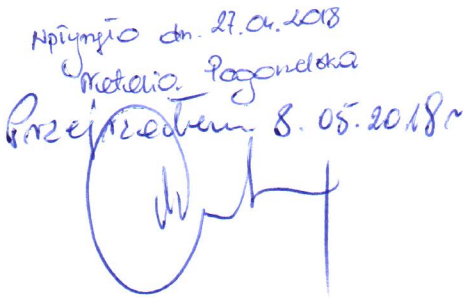 Wpłynęło dn. 27.04.2018
Natalia Pogonelska
Przejrzałem 8.05.2018r